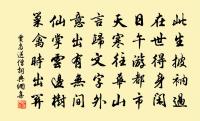 此生披衲過
在世得身閒
日午游都市
天寒往華山
言歸文字外
意出有無間
仙掌雲邊樹
巢禽時出關
賈島送僧詞典網